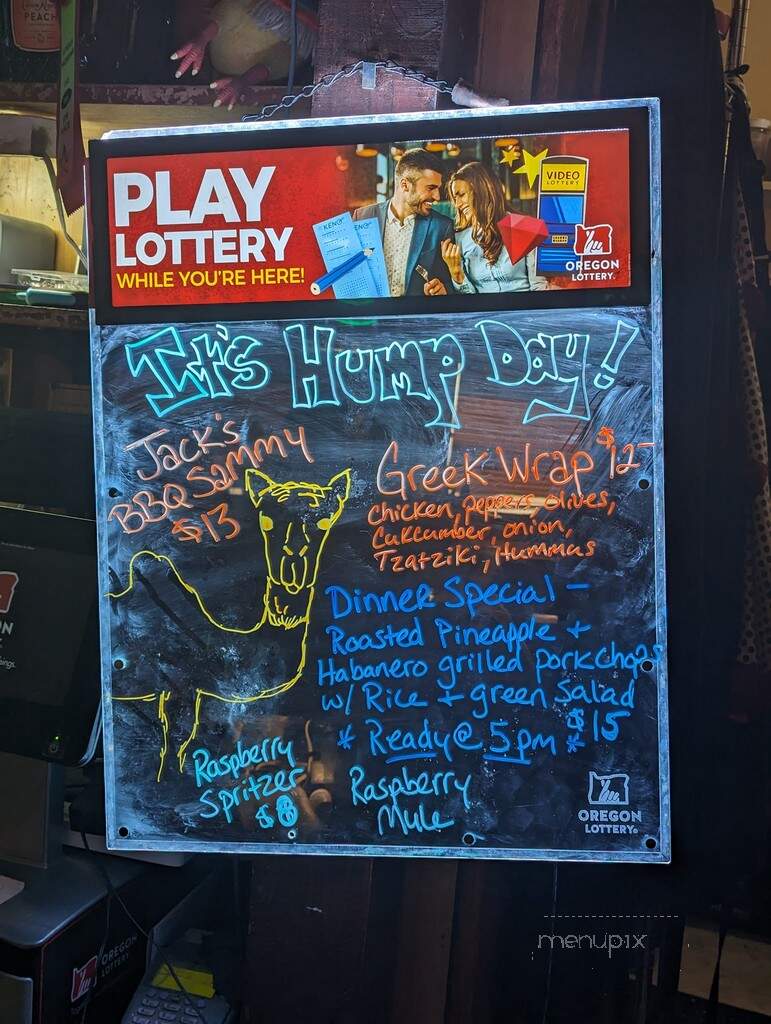 PEACH
PLAY
LOTTERY
WHILE YOU'RE HERE!
KENO
KENO
VIDEO
LOTTERY
OREGON
LOTTERY.
It's Hump Day!
Jack's
BBQ Sammy
$13
Greek Wrap $12-
Chicken, Peppers, Olives,
Cukcumber, onion,
Tzatziki, Hummas
Dinner Special -
Roasted Pineapple +
Habanero grilled porkchops
w/ Rice + green Salad
$15
* Ready @ 5pm *
Raspberry
Spritzer
$8
Raspberry
Mule
OREGON
LOTTERY®
OREGON
LOTTERY
menupix